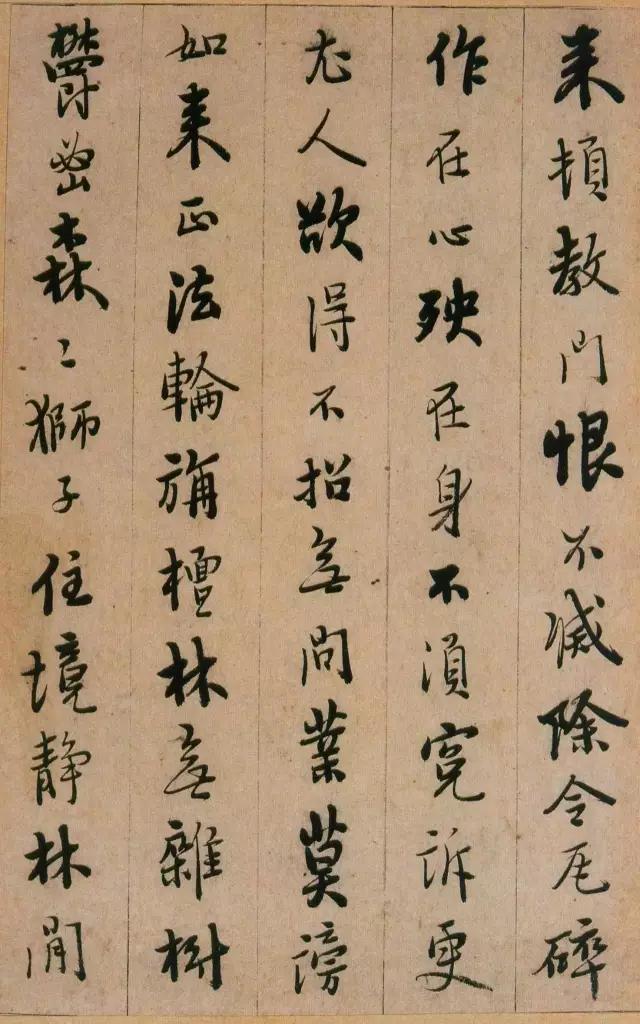 来頓教門恨不滅除令瓦碎
作在心殃在身不湏寃訴更
尤人欲得不招無間業莫謗
如来正法輪旃檀林無雜樹
欝密森〻獅子住境静林閒